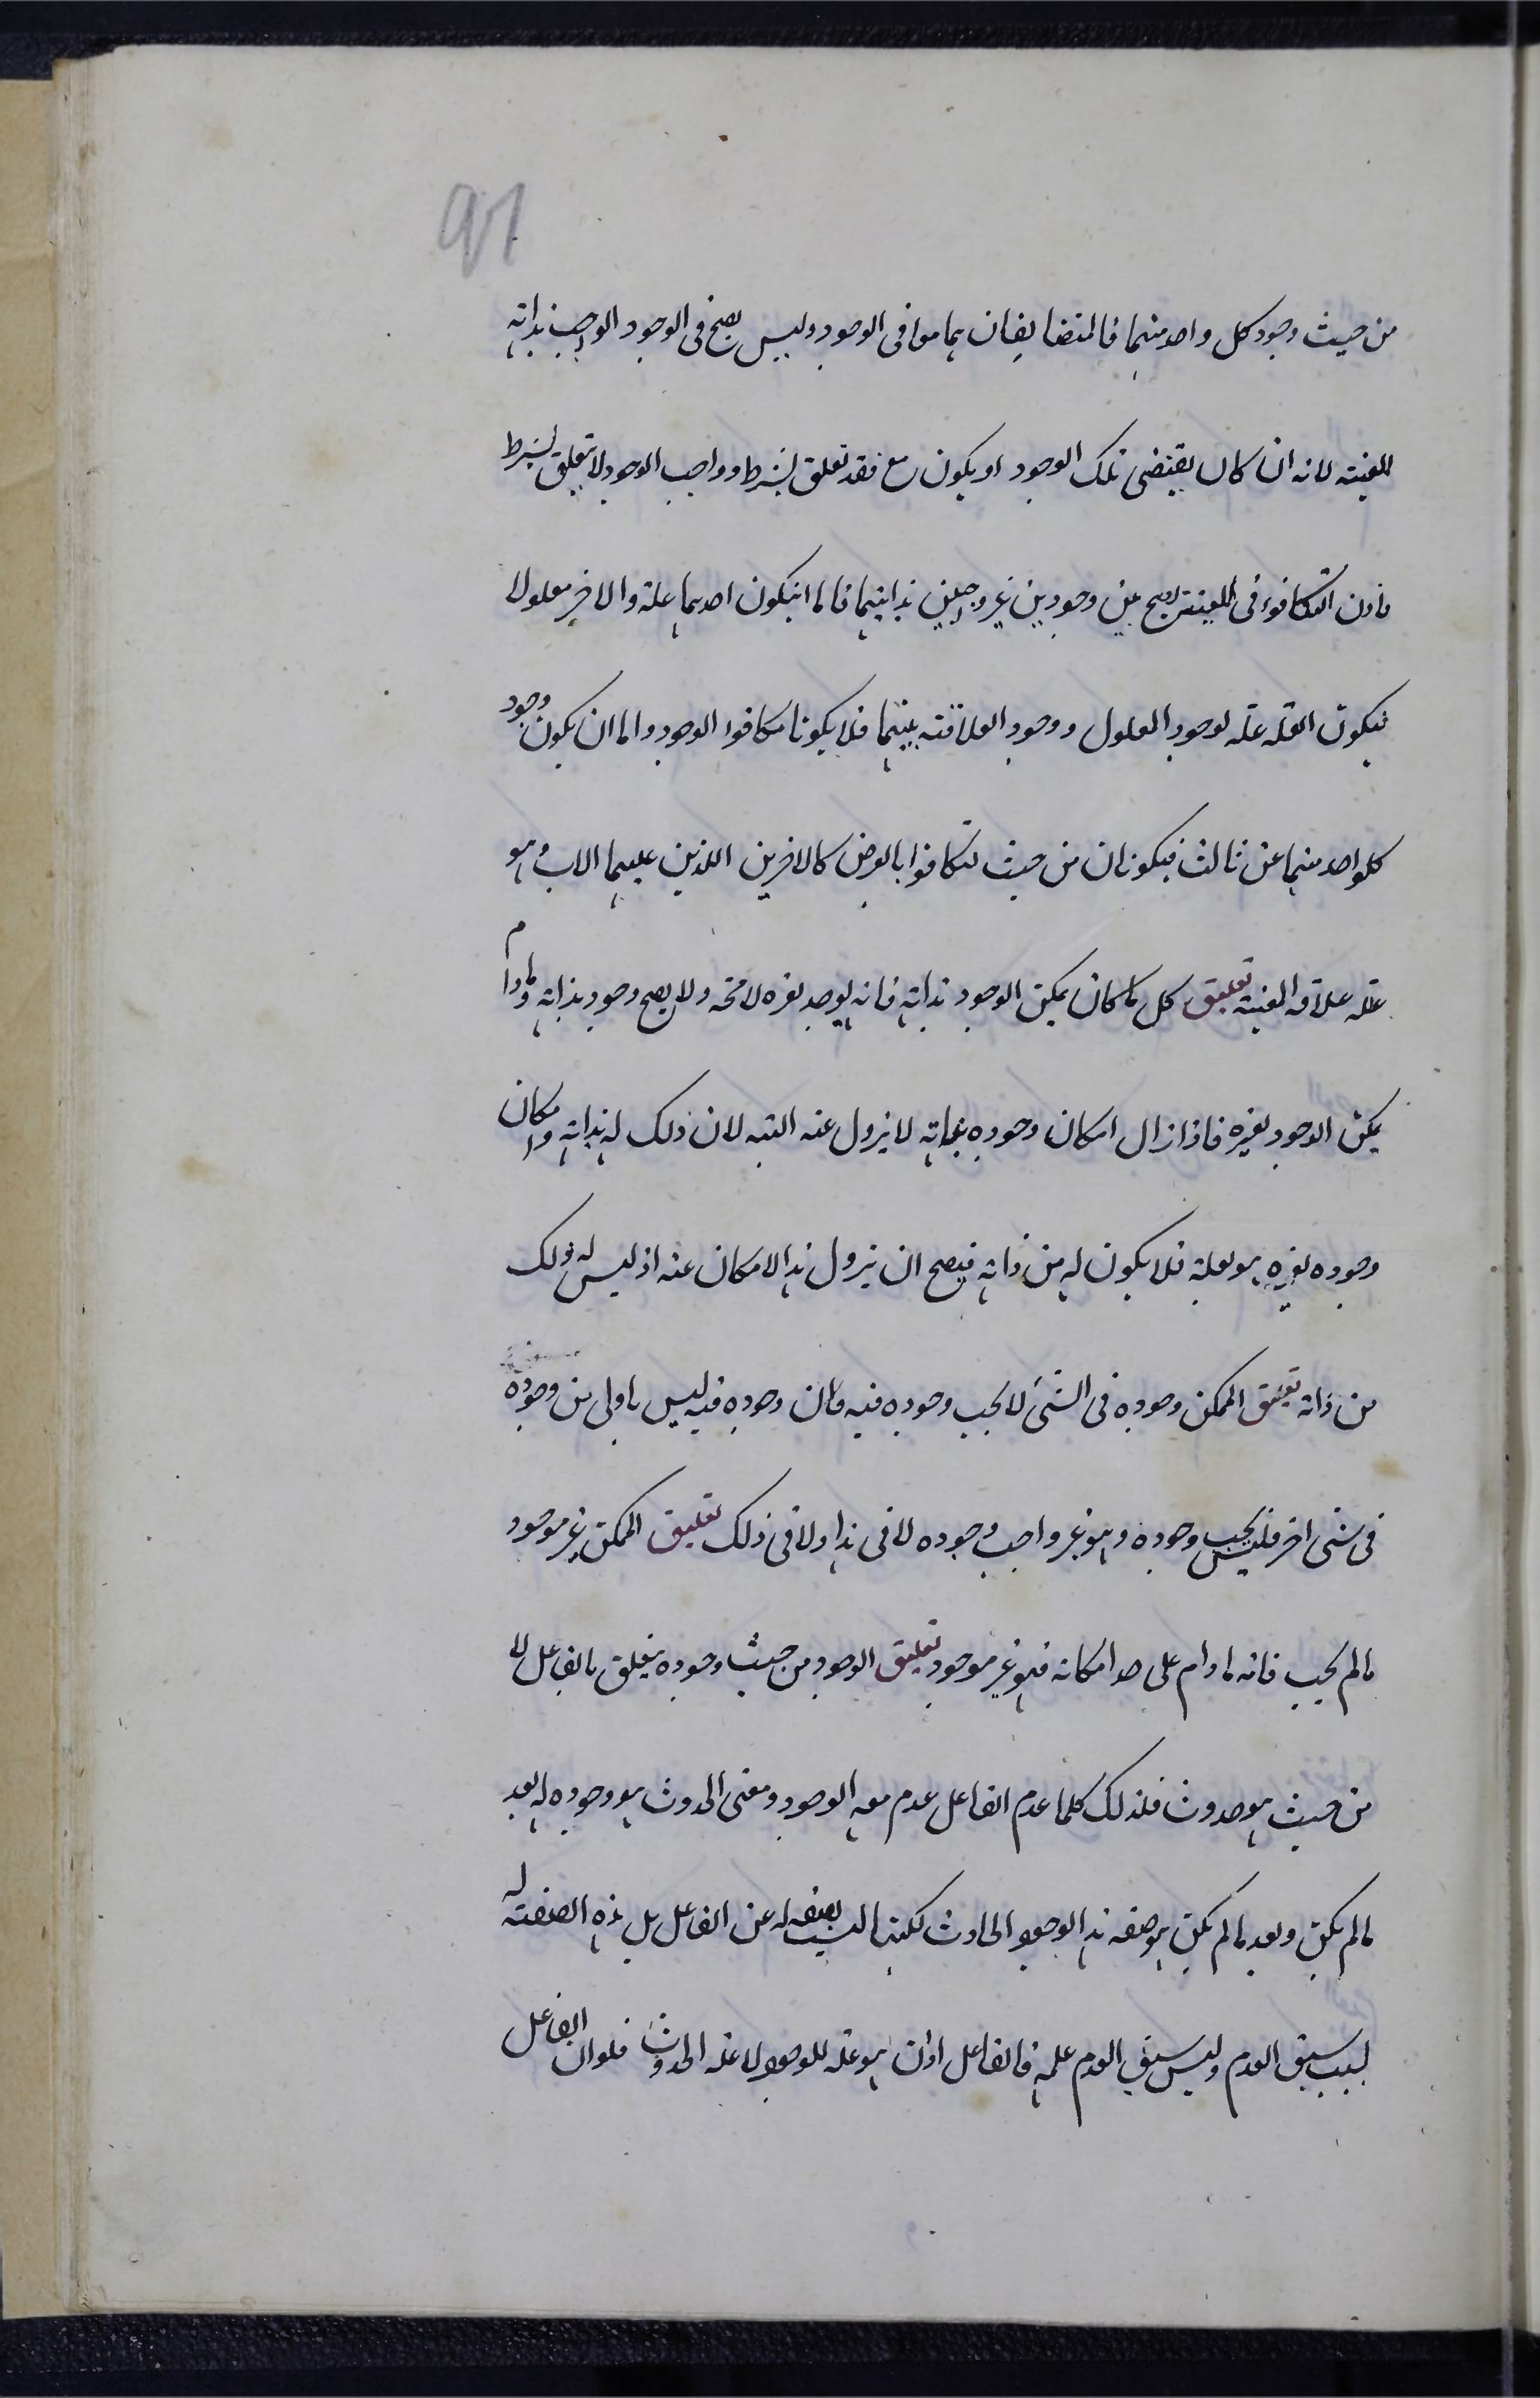 91
من حيث وجود كل واحد منهما فالمتضايفان هما معا فى الوجود وليس يصح فى الوجود الواجب بذاته
المعية لانه ان كان يقتضى تلك الوجود او يكون مع فقد تعلق بشرط وواجب الوجود لا يتعلق بشرط
فاذن التكافوء فى المعية يصح بين وجودين غير واجبين بذاتيهما فاما ان يكون احدهما علة والاخر معلولا
فيكون العلة علة لوجود المعلول ووجود العلاقة بينهما فلا يكونا متكافوا الوجود واما ان يكون وجود
كلواحد منهما عن ثالث فيكونان من حيث تكافوا بالعرض كالاخوين اللذين عليهما الاب وهو
علة علاقة المعية تعليق كل ما كان يمكن الوجود بذاته فانه يوجد بغيره لا محة ولا يصح وجود بذاته ومادام
يمكن الوجود بغيره فاذا زال امكان وجوده بذاته لا يزول عنه البته لان ذلك له بذاته وامكان
وجوده بغيره هو لعلة فلا يكون له من ذاته فيصح ان يزول هذا الامكان عنه اذ ليس له ذلك
من ذاته تعليق الممكن وجوده فى الشئ لا يجب وجوده فيه فان وجوده فيه ليس باولى من وجوده
فى شئ اخر فليس يجب وجوده وهو غير واجب وجوده لا فى هذا ولا فى ذلك تعليق الممكن غير موجود
ما لم يجب فانه مادام على حد امكانه فهو غير موجود تعليق الوجود من حيث وجوده يتعلق بالفاعل لا
من حيث هو حدوث فلذلك كلما عدم الفاعل عدم معه الوجود ومعنى الحدوث هو وجوده له بعد
ما لم يكن وبعد ما لم يكن هو صفة هذا الوجود الحادث لكنها ليست بصفة له عن الفاعل بل هذه الصفة له
بسبب سبق العدم وليس سبق العدم علمه فالفاعل اذن هو علة للوجود لا علة الحدوث فلو ان الفاعل